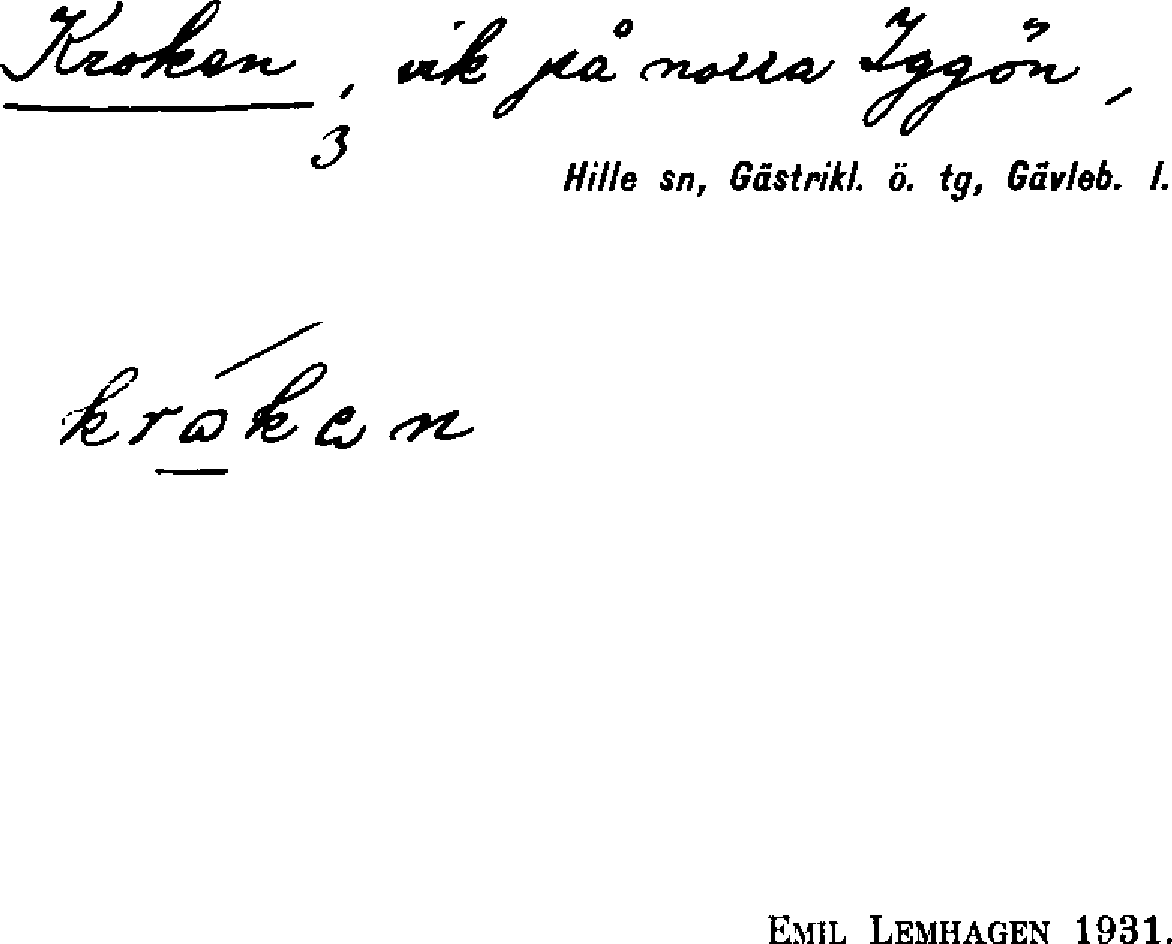 Kroken, vik på norra Iggön,
3
Hille sn, Gästrikl. ö. tg, Gävleb. l.
EMIL LEMHAGEN 1931.